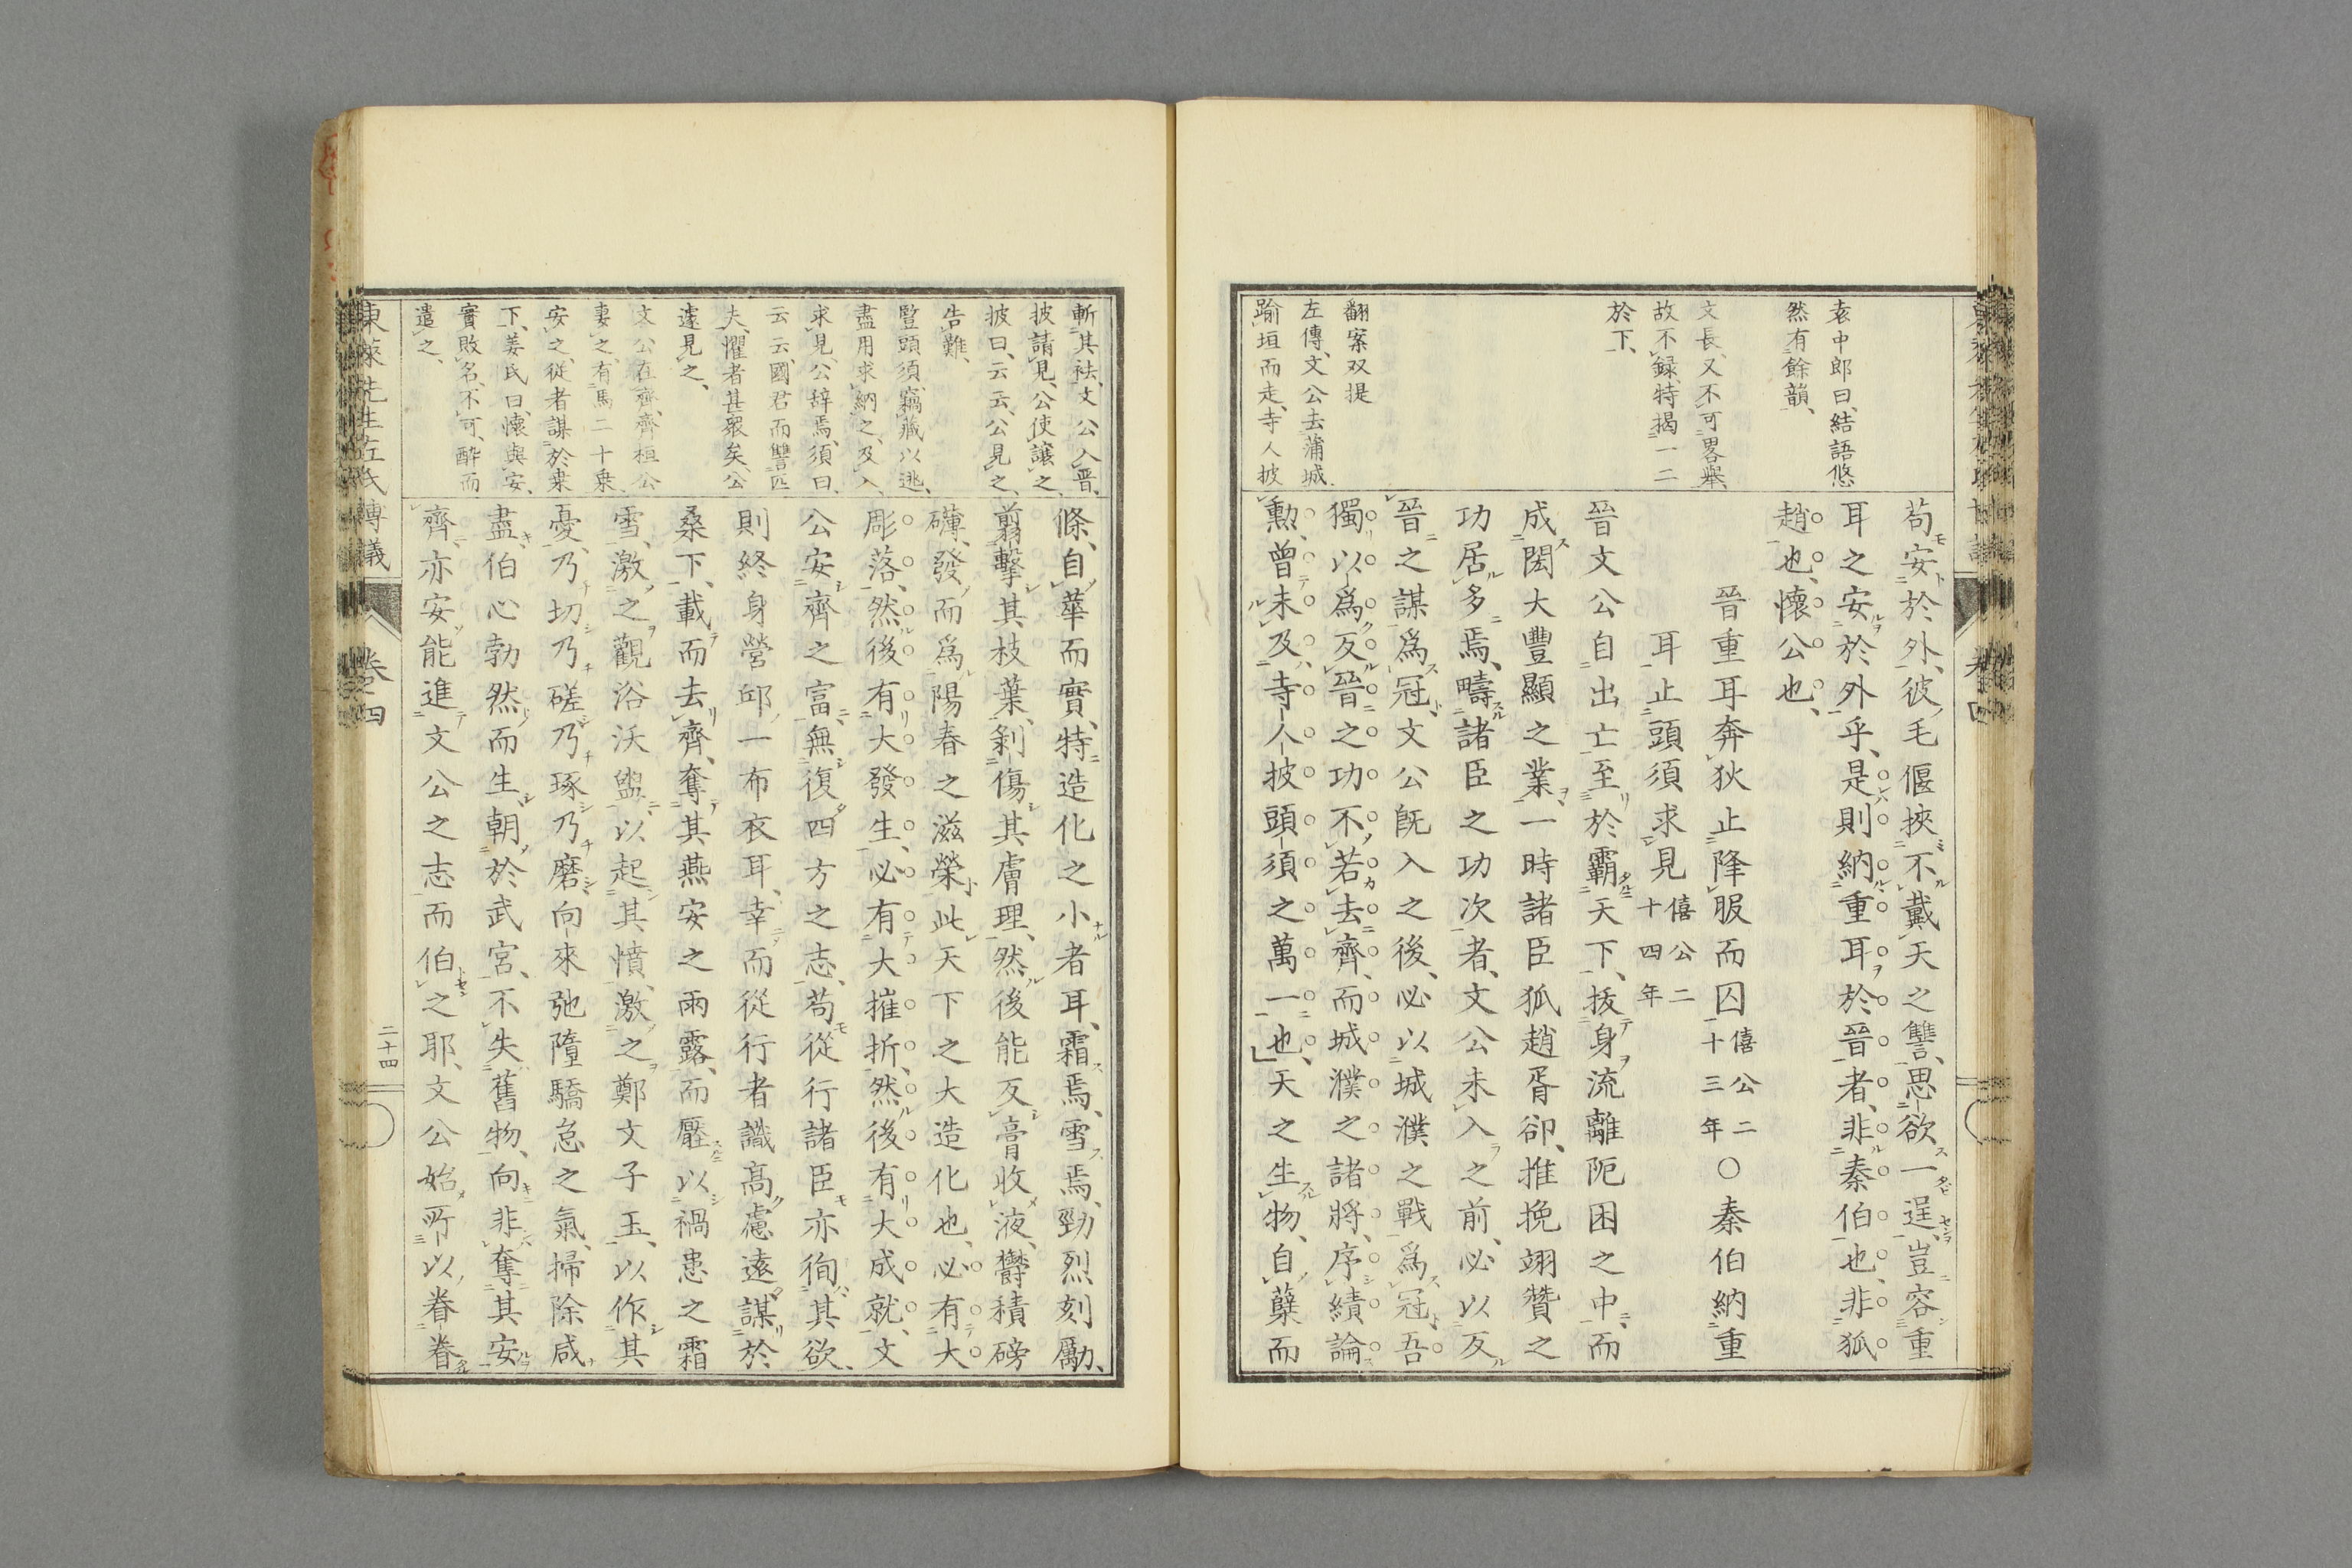 袁中郎曰、結語悠
然有餘韻、
文長、又不可畧舉、
故不録、特揭一二
於下、
翻案双提
左傳、文公去蒲城、
踰垣而走、寺人披
苟安於外、彼毛偃挾不戴天之讐、思欲一逞、豈容重
耳之安於外乎、是則納重耳於晉者、非秦伯也、非狐
趙也、懷公也、
晉重耳奔狄止降服而囚僖公二十三年○秦伯納重
耳止頭須求見僖公二十四年
晉文公自出亡至於霸天下、拔身流離阨困之中、而
成閎大豐顯之業、一時諸臣狐趙胥卻、推挽翊贊之
功居多焉、疇諸臣之功次者、文公未入之前、必以反
晉之謀爲冠、文公既入之後、必以城濮之戰爲冠、吾
獨以爲反晉之功不若去齊、而城濮之諸將、序績論
勲、曾未及寺人披頭須之萬一也、天之生物、自蘖而
斬其袪、文公入晋、
披請見、公使讓之、
披曰、云云、公見之、
告難、
豎頭須、竊藏以逃、
盡用求納之、及入、
求見、公辞焉、須曰、
云云、國君而讐匹
夫、懼者甚衆矣、公
遽見之、
文公在齊、齊桓公
妻之、有馬二十乗、
安之、從者謀於桒
下、姜氏曰、懷與安、
實敗名、不可、醉而
遣之、
條、自華而實、特造化之小者耳、霜焉、雪焉、勁烈刻厲、
翦擊其枝葉、剝傷其膚理、然後能反膏收液、欝積磅
礴、發而爲陽春之滋榮、此天下之大造化也、必有大
彫落、然後有大發生、必有大摧折、然後有大成就、文
公安齊之富、無復四方之志、苟從行諸臣亦徇其欲、
則終身營邱一布衣耳、幸而從行者識高慮遠、謀於
桑下、載而去齊、奪其燕安之雨露、而壓以禍患之霜
雪、激之觀浴沃盥、以起其憤、激之鄭文子玉、以作其
憂、乃切乃磋乃琢乃磨、向來弛隳驕怠之氣、掃除咸
盡、伯心勃然而生、朝於武宮、不失舊物、向非奪其安
齊、亦安能進文公之志而伯之耶、文公始所以眷眷
東萊先生左氏博議 卷之四 二十四